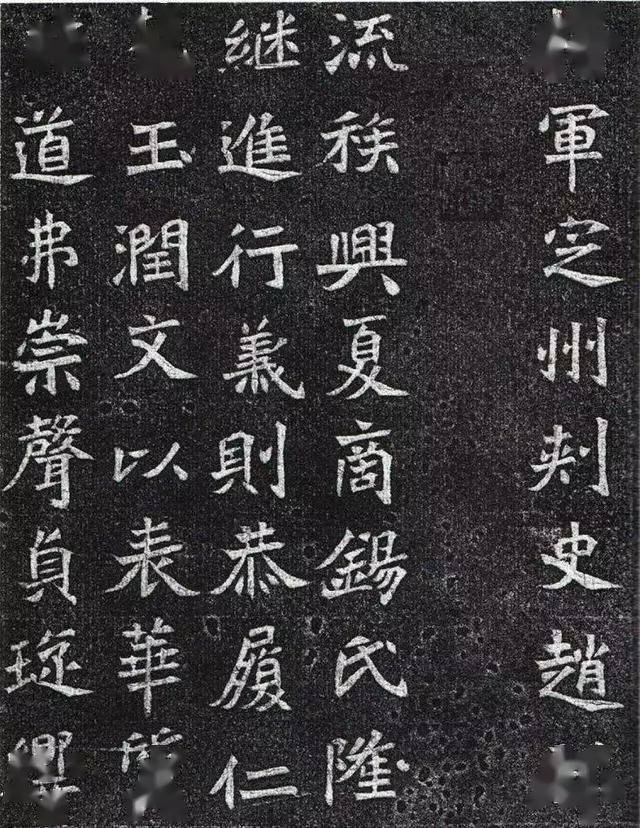 軍定州刾史趙
流族興夏商錫氏隆
継進行義則恭履仁
玉潤文以表華
道弗崇聲貞琁